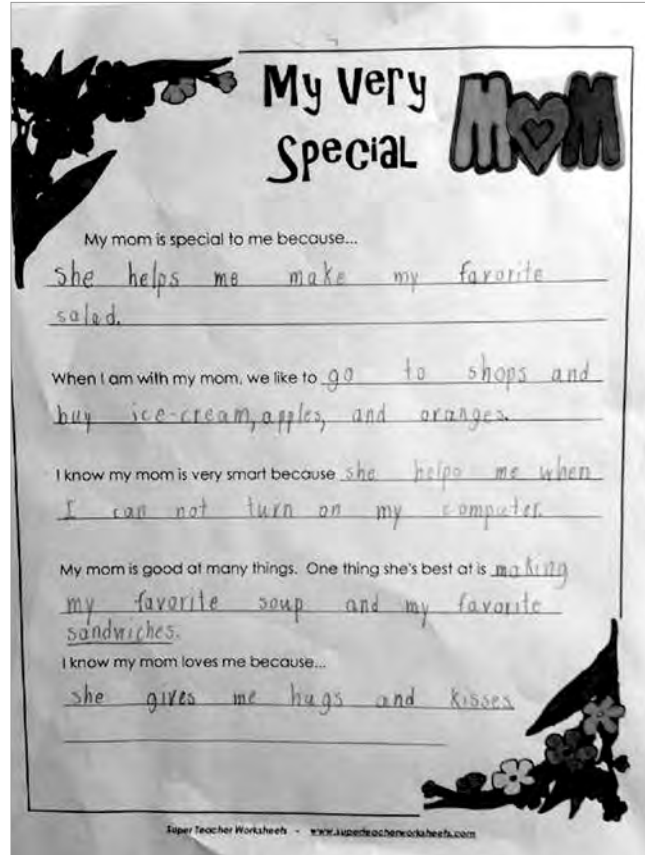 My Very
Special
MOM
My mom is special to me because...
she helps me make my favorite
salad.
When I am with my mom, we like to go to shops and
buy ice-cream, apples, and oranges.
I know my mom is very smart because she helps me when
I can not turn on my computer.
My mom is good at many things. One thing she's best at is making
my favorite soup and my favorite
sandwiches.
I know my mom loves me because...
she gives me hugs and kisses.
Super Teacher Worksheets - www.superteacherworksheets.com